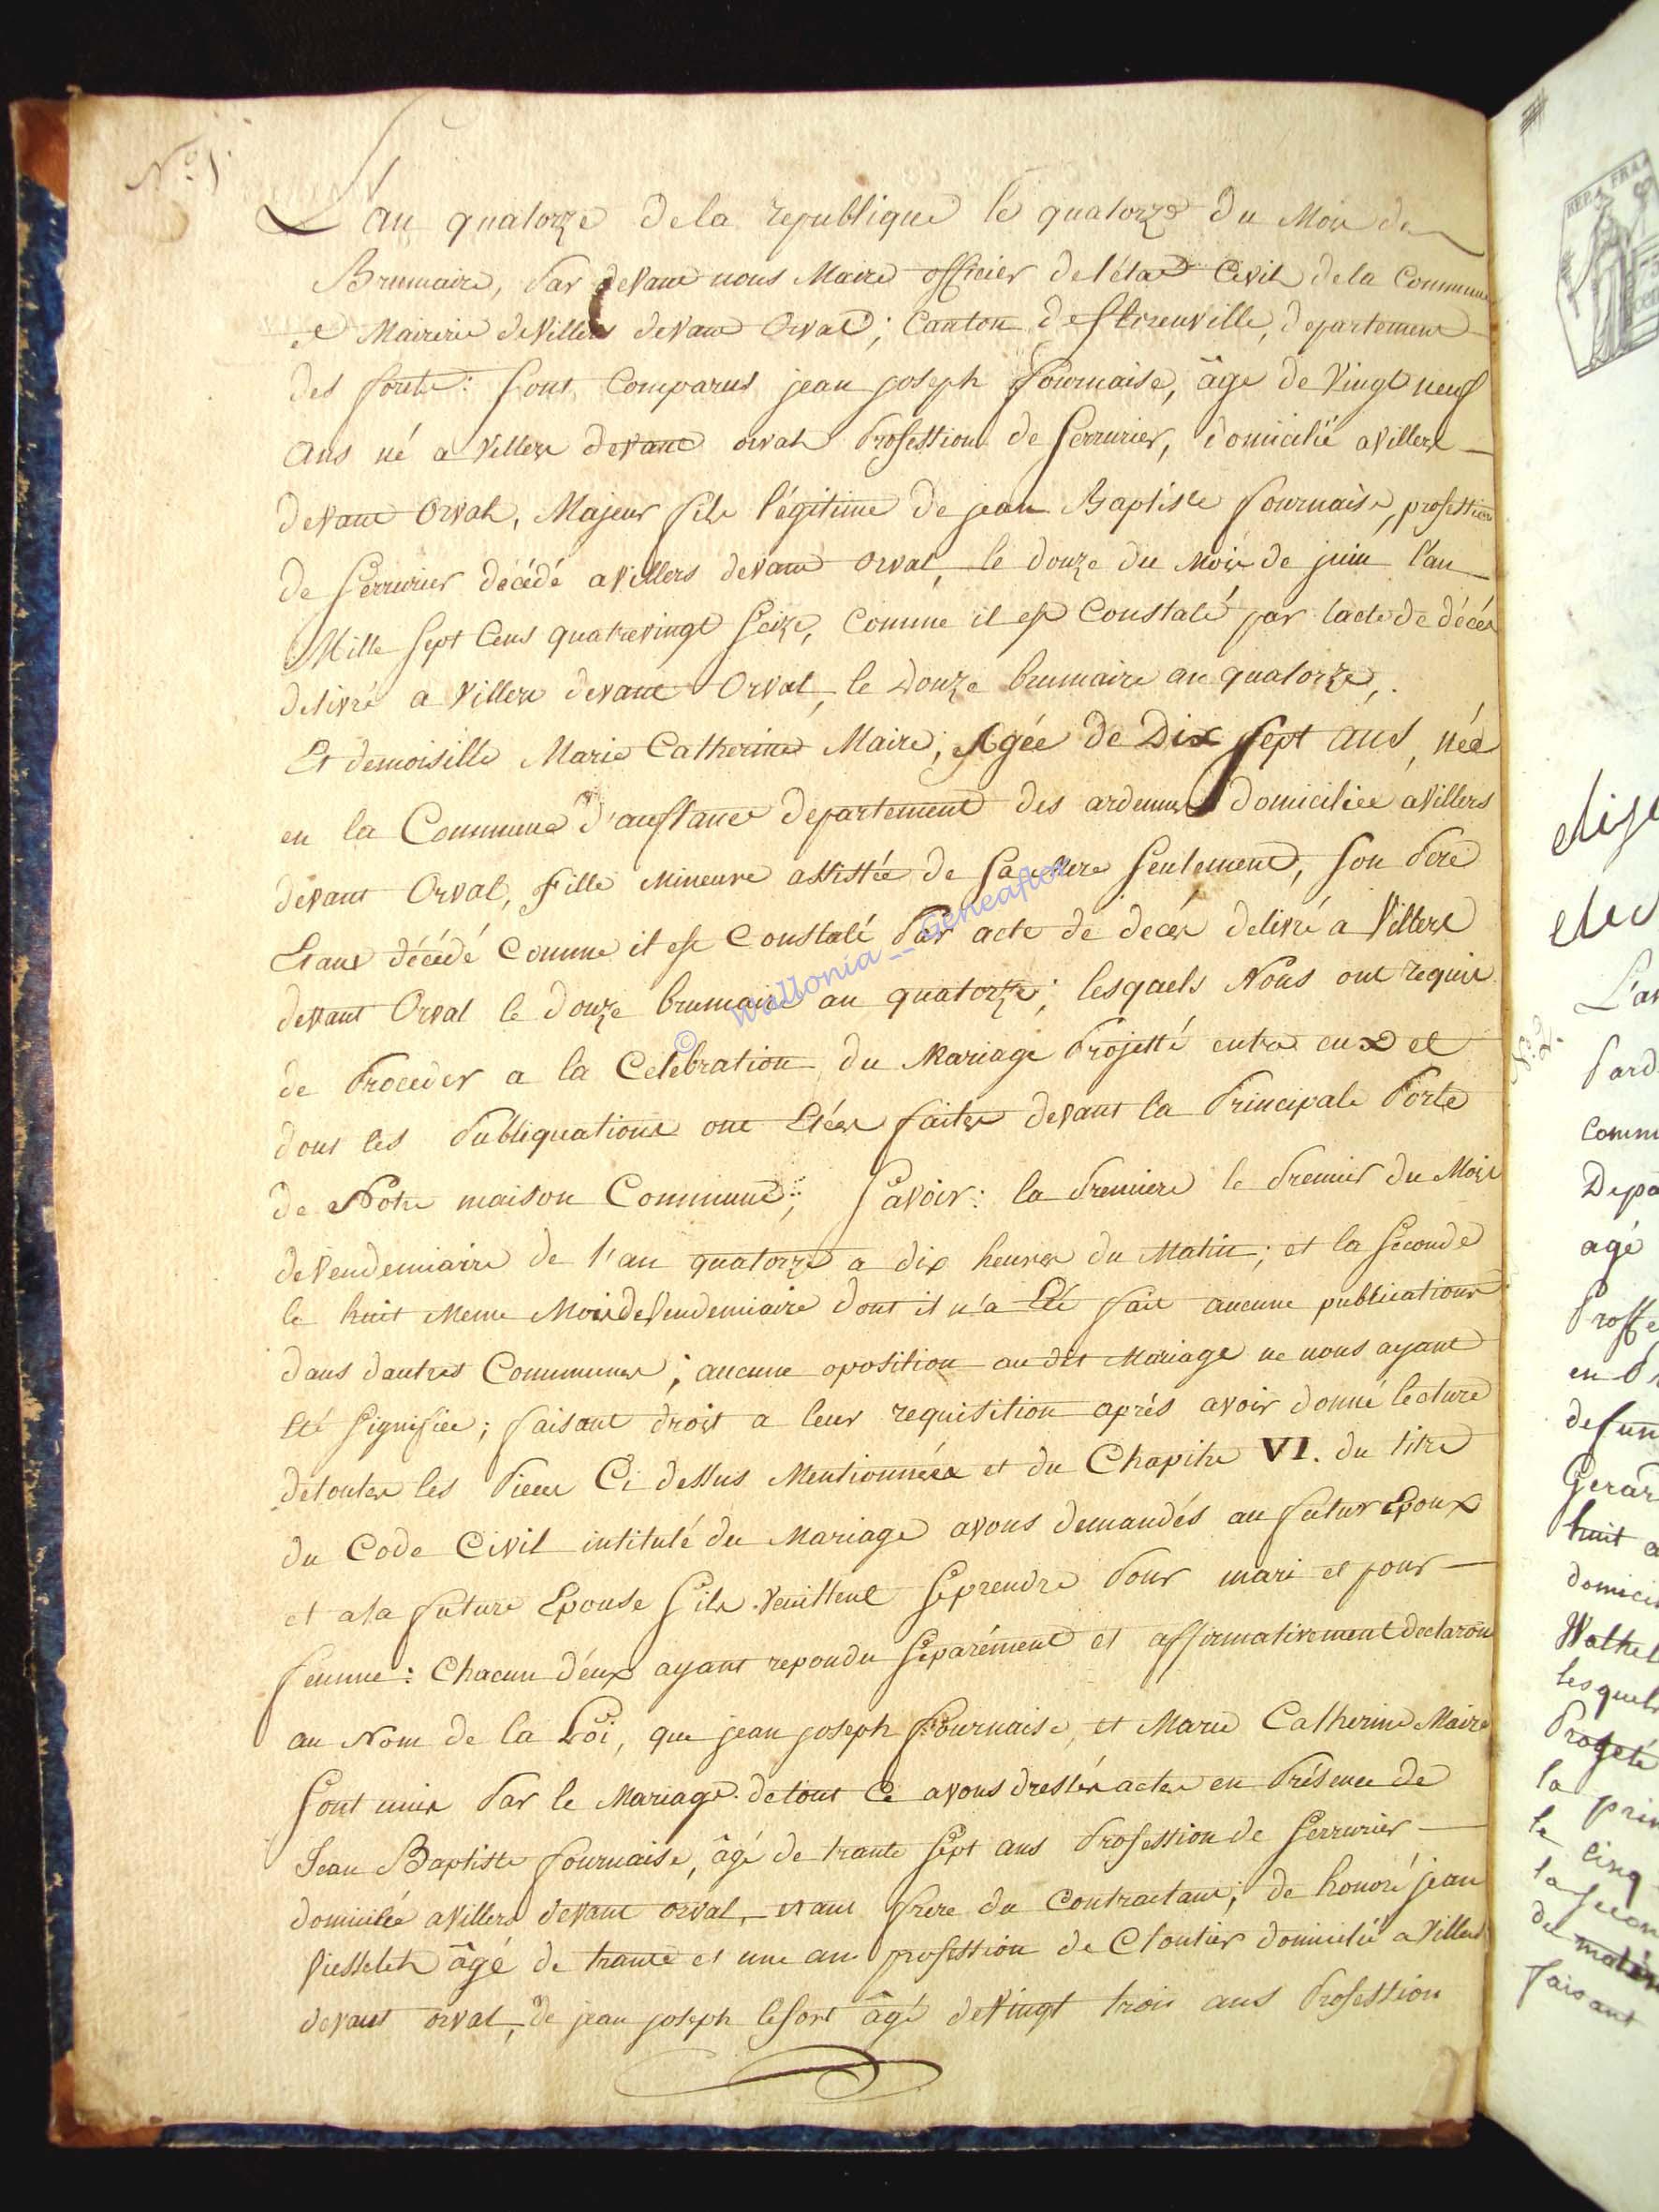 N.º 1.
L'an quatorze de la republique le quatorze du Mois de
Brumaire, Par devant nous Maire officier de l'état Civil de la Commune
et Mairerie de Villers devant Orval; Canton de florenville, departement
des forets: Sont Comparus jean joseph fournaise, âgé de Vingt neuf
Ans né a Villers devant orval Profession de Serrurier, domicilié a Villers
devant Orval, Majeur fils légitime de jean Baptiste fournaise, profession
de Serrurier décédé a Villers devant Orval, le douze du Mois de juin l'an
Mille Sept Cens quatrevingt Seize, Comme il est Constaté par l'acte de décés
delivré a Villers devant Orval, le douze brumaire an quatorze,
Et demoiselle Marie Catherine Maire, Agée de Dix Sept ans, née
en la Commune d'auflance departement des ardennes domiciliée a Villers
devant Orval, Fille Mineure assistée de Sa Mere Seulement, Son Pere
Etant décédé Comme il est Constaté Par acte de decés delivré a Villers
devant Orval le douze brumaire an quatorze; lesquels Nous ont requis
de Proceder a la Celebration du Mariage Projetté entre eux et
dont les Publiquations ont Etées faites devant la Principale Porte
de Notre maison Commune; Savoir: la Premiere le Premier du Mois
de Vendemiaire de l'an quatorze a dix heures du Matin; et la Seconde
le huit Meme Mois de Vendemiaire dont il n'a Eté fait aucune publications
dans dautres Communes; aucune oposition au dit Mariage ne nous ayant
Eté Signifiée; faisant droit a leur requisition aprés avoir donné lecture
de toutes les Pieces Ci dessus Mentionnées et du Chapitre VI. du titre
du Code Civil intitulé du Mariage avons demandés au futur Epoux
et a la future Epouse S'ils veuillent Se prendre Pour mari et pour
femme: Chacun d'eux ayant repondu Séparément et affirmativement declarons
au Nom de la Loi, que jean joseph fournaise, et Marie Catherine Maire
Sont unis Par le Mariage. de tout Ce avons dressés actes en Présence de
Jean Baptiste fournaise, âgé de trante Sept ans Profession de Serrurier
domicilié a Villers devant orval, etant frere du Contractant; de honoré jean
âgé de trante et une an profession de Cloutier domicilié a Villers
devant orval, de jean joseph lefort âgé de Vingt trois ans Profession
REP. FRA
N.º 2.
L'an
Pard
comm
Depa
agé
Proffe
en
defun
Gerar
huit a
domici
Wathel
lesquels
Progeté
la prin
le cinq
la Secon
du matin
faisant
© Wallonia__Geneaflor